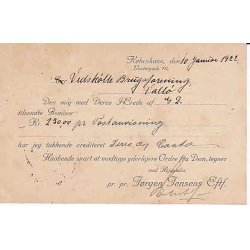 København, den 10 Januar 1922
Vedskølle Brugsforening
Valló
Den mig med Deres Ærede af 4/2.
tilsendte
Kr. 230.00 pr Postanvisning
har jeg takkende crediteret Deres Conto
Haabende snart at modtage yderligere Ordre fra Dem, tegner
med Højagtelse
pr. pr. Jørgen Jensens Eftf.